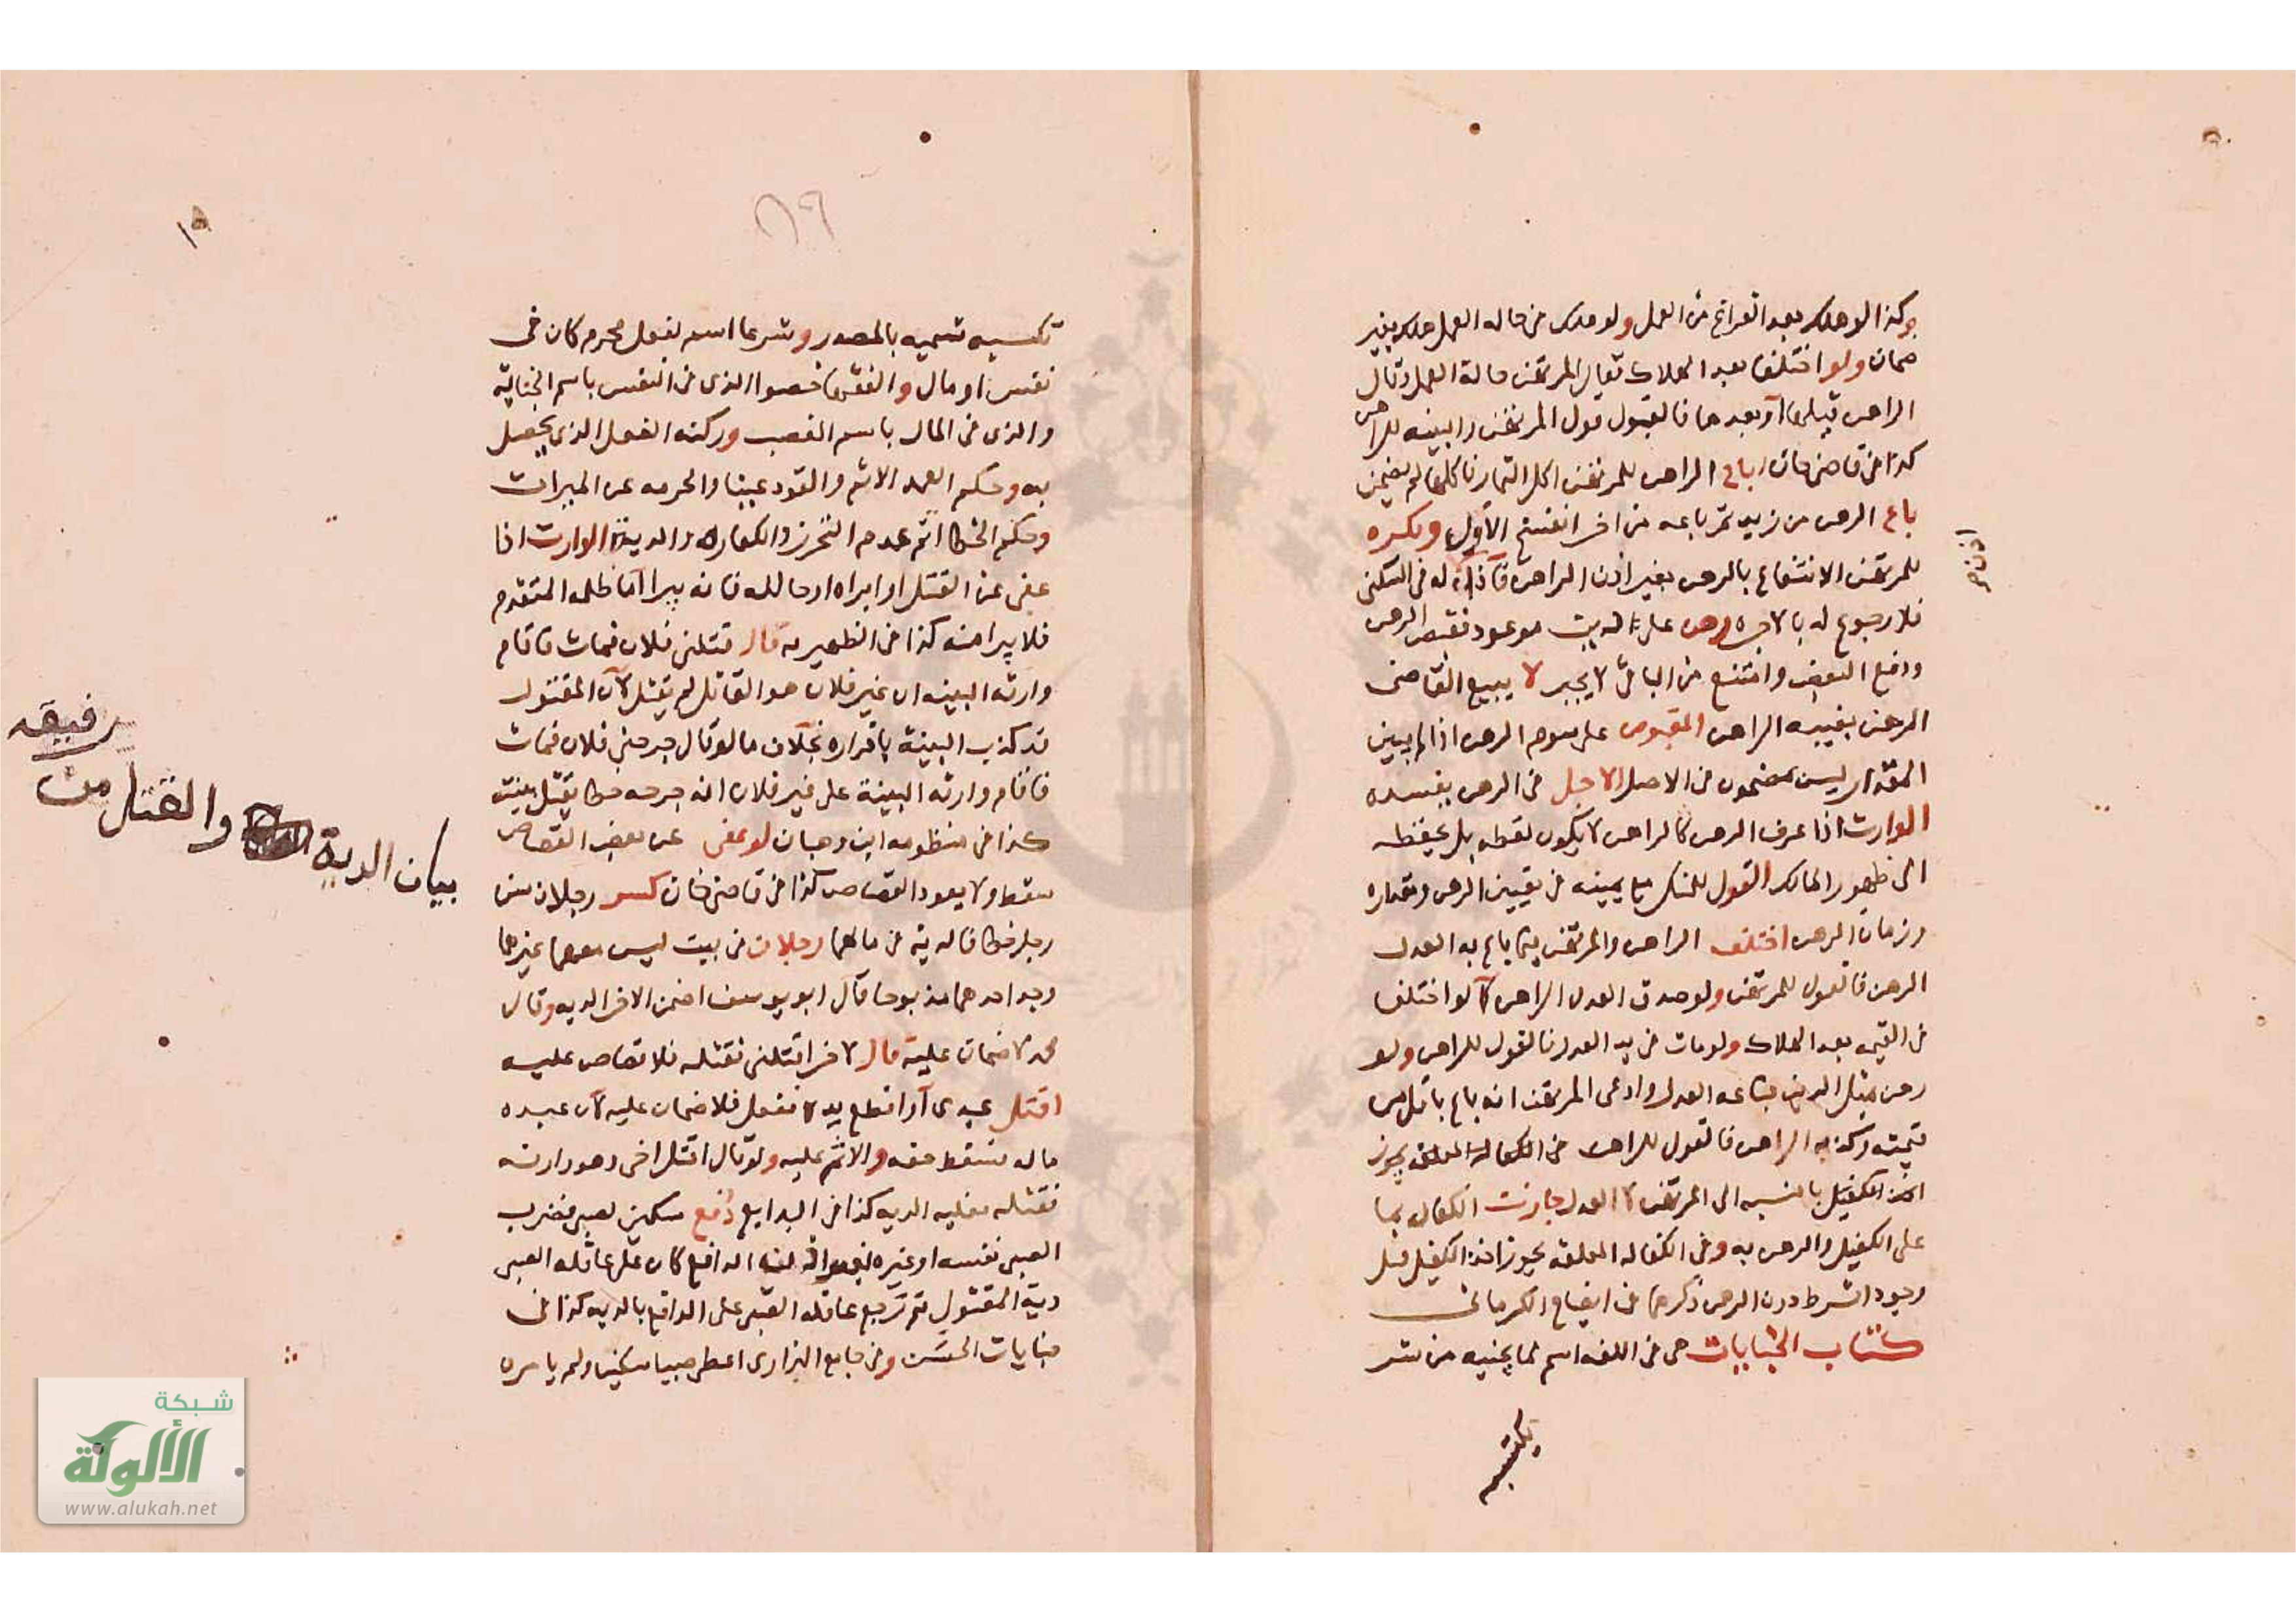 وكذا لو هلك بعد الفراغ من العمل ولو هلك في حالة العمل هلك بغير
ضمان ولو اختلفا بعد الهلاك فقال المرتهن حالة العمل وقال
الراهن قبلها أو بعدها فالقول قول المرتهن والبينه للراهن
كذا في قاضي خان اباح الراهن للمرتهن اكل الثمار فاكلها لم يضمن
باع الرهن من زيد ثم باعه من اخر انفسخ الأول ويكره
للمرتهن الانتفاع بالرهن بغير اذن الراهن له في السكنى
فلا رجوع له بالاجره رهن على انه موعود فقبض الرهن
ودفع البعض وامتنع من الباقي لا يجبر لا يبيع القاضي
الرهن بغيبه الراهن المقبوض على سوم الرهن اذا لم يبين
المقدار ليس بمضمون في الاصل الاجل في الرهن يفسده
الوارث اذا عرف الرهن لا الراهن لا يكون لقطه بل يحفظه
الى ظهور المالك القول للمنكر مع يمينه في تعيين الرهن ومقداره
وزمان الرهن اختلف الراهن والمرتهن فيما باع به العدل
الرهن فالقول للمرتهن ولو صدق العدل الراهن كما لو اختلفا
في القيمه بعد الهلاك ولو مات في يد العدل فالقول للراهن ولو
رهن مثل الدين فباعه العدل وادعى المرتهن انه باع باقل من
قيمته وكذبه الراهن فالقول للراهن في الكفالة المعلقه يجوز
اخذ الكفيل بالنسبه الى المرتهن لا العدل جازت الكفاله بما
على الكفيل والرهن به وفي الكفاله المعلقه يجوز اخذ الكفيل قبل
وجود الشرط دون الرهن ذكرهما في ايضاح الكرماني
كتاب الجنايات هي في اللغه اسم لما يجنيه من شر
تكتسبه
اذن صح
تكسبه تسميه بالمصدر وشرعا اسم لفعل محرم كان في
نفس او مال والفقها خصوا الذي في النفس باسم الجناية
والذي في المال باسم الغصب وركنه الفعل الذي يحصل
به وحكم العمد الاثم والقود عينا والحرمه عن الميراث
وحكم الخطا اثم عدم التحرز والكفاره والدية الوارث اذا
عفى عن القتل او ابراه او صالحه فانه يبرا اما ظلمه المتقدم
فلا يبرا منه كذا في الظهيريه قال قتلني فلان فمات فاقام
وارثه البينه ان غير فلان هو القاتل لم يقبل لأن المقتول
قد كذب البينة باقراره بخلاف ما لو قال جرحني فلان فمات
فاقام وارثه البينة على غير فلان انه جرحه خطا يقبل بينته
كذا في منظومه ابن وهبان لو عفى عن بعض القصاص
سقط ولا يعود القصاص كذا في قاضي خان كسر رجلان سن
رجل خطا فالديه في مالهما رجلان في بيت ليس معهما غيرهما
وجد احدهما مذبوحا قال ابو يوسف اضمن الاخر الديه وقال
محمد لا ضمان عليه قال لاخر اقتلني فقتله فلا قصاص عليه
اقتل عبدي أو اقطع يده ففعل فلا ضمان عليه لأن عبده
ماله فسقط حقه والاثم عليه ولو قال اقتل اخي وهو وارثه
فقتله فعليه الديه كذا في البدايع دفع سكين لصبي فضرب
الصبي نفسه او غيره الدافع كان على عاقله الصبي
دية المقتول ثم ترجع عاقله الصبي على الدافع بالديه كذا في
جنايات الحسن وفي جامع البزازي اعطى صبيا سكينا ولم يامره
رفيقه
والقتل من
بيان الدية
١٥
٨٩
شبكة
الألوكة
www.alukah.net